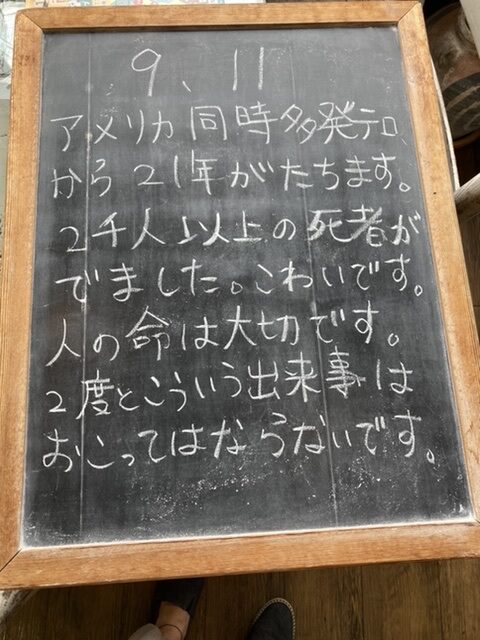 9、11
アメリカ同時多発テロ
から21年がたちます。
2千人以上の死者が
でました。こわいです。
人の命は大切です。
2度とこういう出来事は
おこってはならないです。